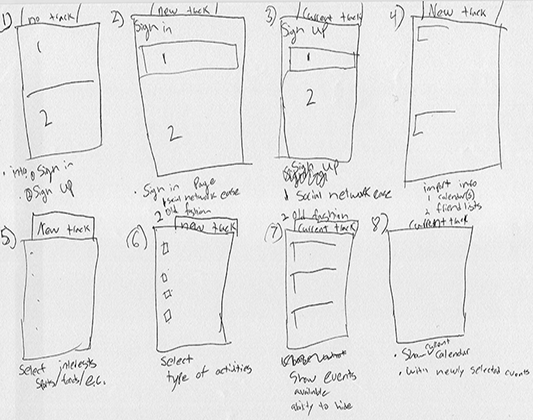 1)
no track
1
2
• intro, ① Sign in
② Sign up
2)
new track
Sign in
1
2
• Sign in Page
1 social network ease
2 old fashion
3)
Current track
Sign up
1
2
Sign up
1 Social network ease
2 old fashion
4)
New track
import info
1 calendar(s)
2 friend lists
5)
New track
Select interests
6)
new track
Select
type of activities
7)
Current track
Show events
available
ability to hide
8)
Current track
• Show current Calendar
• with newly selected events